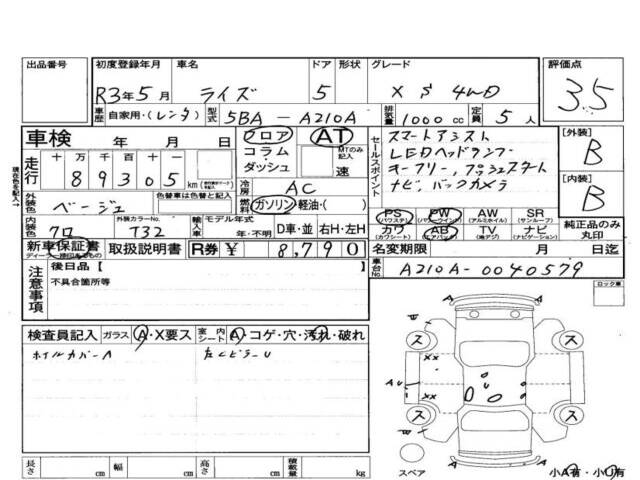 出品番号
初度登録年月 R3年5月
車名 ライズ
ドア 5
形状
グレード X S 4WD
評価点 3.5
車歴 自家用・(レンタ)
型式 5BA-A210A
排気量 1000 cc
定員 5 人
車検 年 月 日
フロア コラム ダッシュ
AT
MTのみ記入
速
セールスポイント
スマートアシスト
LEDヘッドランプ
キーフリー,プッシュスタート
ナビ,バックカメラ
[外装] B
[内装] B
現在色を記入→
走行 十 万 千 百 十
89305 km
外装色 ベージュ
色替車は色替と記入
冷房 AC
燃料 ガソリン・軽油・( )
内装色 クロ
外装カラーNo. T32
輸入車
モデル年式 年・不明
D車・並 右H・左H
PS (パワステ)
PW (パワーウインド)
AW (アルミホイル)
SR (サンルーフ)
カワ (カワシート)
AB (エアバック)
TV (地デジ)
ナビ (ナビゲーション)
純正品のみ丸印
新車保証書
取扱説明書
R券 ¥ 8,790
名変期限 月 日迄
車台No. A210A-0040579
注意事項
後日品 [ ]
不具合箇所等
ロック車
検査員記入 ガラス A・X要ス
室内シート A・コゲ・穴・汚れ・破れ
ホイルカバーA
左Cピラー U
ス ス
xx
A U
xx
ス ス
A A
スペア
小A有・小U有
長さ cm
幅 cm
高さ cm
積載量 kg